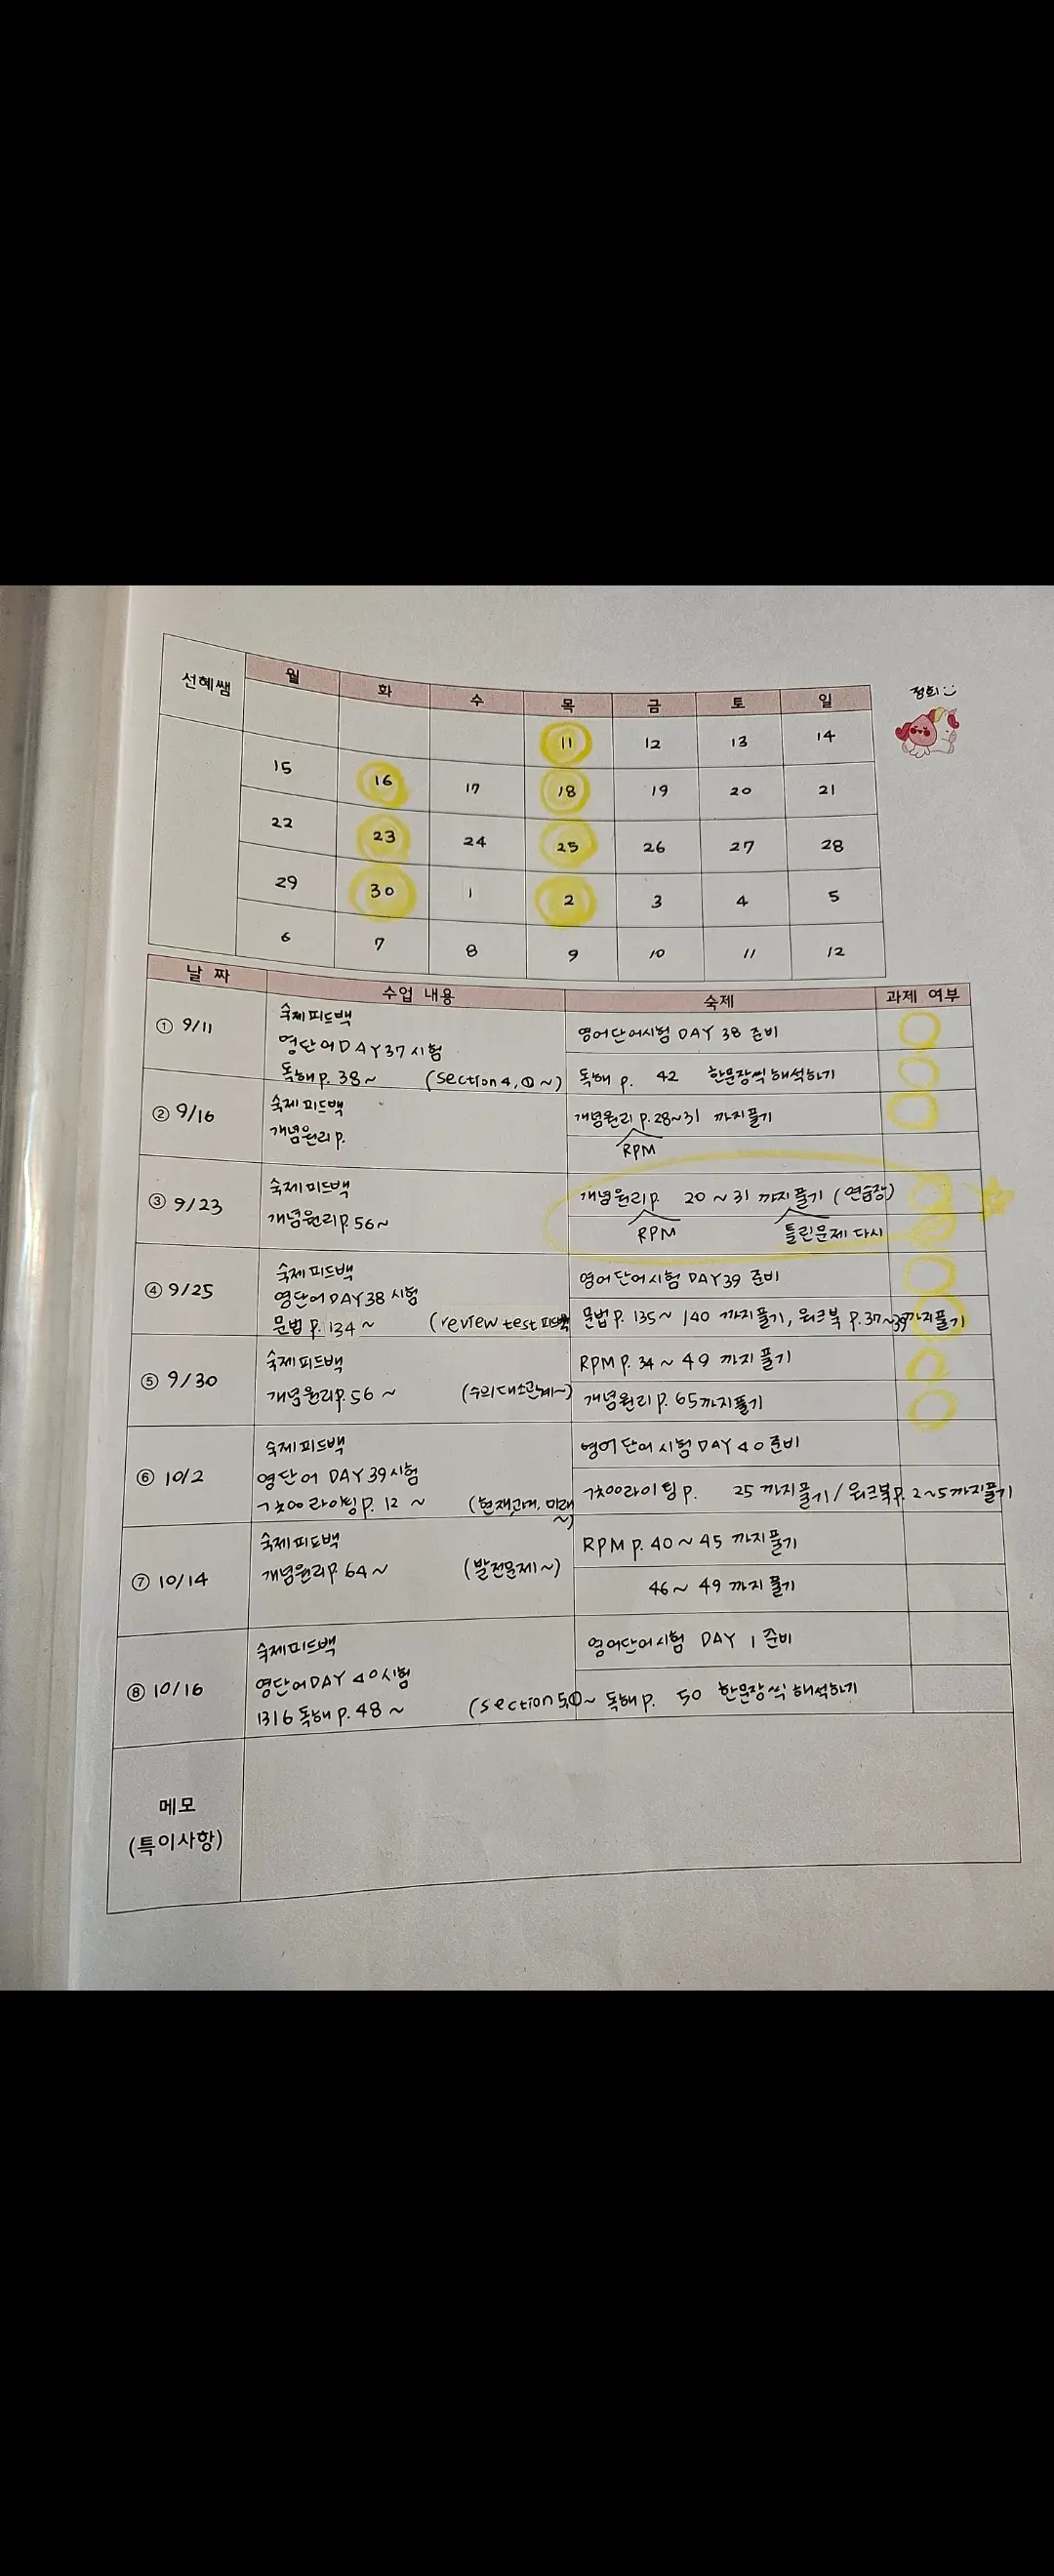 선혜쌤 월 화 수 목 금 토 일
정희
11 12 13 14
15 16 17 18 19 20 21
22 23 24 25 26 27 28
29 30 1 2 3 4 5
6 7 8 9 10 11 12
날 짜 수업 내용 숙제 과제 여부
① 9/11
숙제피드백
영단어 DAY 37 시험
독해 p. 38~ (section 4, ①~)
영어단어시험 DAY 38 준비
독해 p. 42 한문장씩 해석하기
② 9/16
숙제피드백
개념원리 p.
개념원리 p.28~31 까지풀기
RPM
③ 9/23
숙제피드백
개념원리 p.56~
개념원리 p. 20~31 까지풀기 (연습장)
RPM 틀린문제 다시
④ 9/25
숙제피드백
영단어 DAY 38 시험
문법 p. 134~ (review test 피드백
영어단어시험 DAY 39 준비
문법 p. 135~140 까지풀기, 워크북 p.37~39까지풀기
⑤ 9/30
숙제피드백
개념원리 p.56~ (수의대소관계~)
RPM p. 34~49 까지 풀기
개념원리 p. 65까지풀기
⑥ 10/2
숙제피드백
영단어 DAY 39 시험
라이팅 p. 12~ (현재완료, 미래
~)
영어단어시험 DAY 40 준비
라이팅 p. 25 까지풀기 / 워크북 p. 2~5까지풀기
⑦ 10/14
숙제피드백
개념원리 p 64~ (발전문제~)
RPM p. 40~45 까지풀기
46~49 까지 풀기
⑧ 10/16
숙제피드백
영단어 DAY 40 시험
1316 독해 p. 48~ (section 5,①~
영어단어시험 DAY 1 준비
독해 p. 50 한문장씩 해석하기
메모
(특이사항)